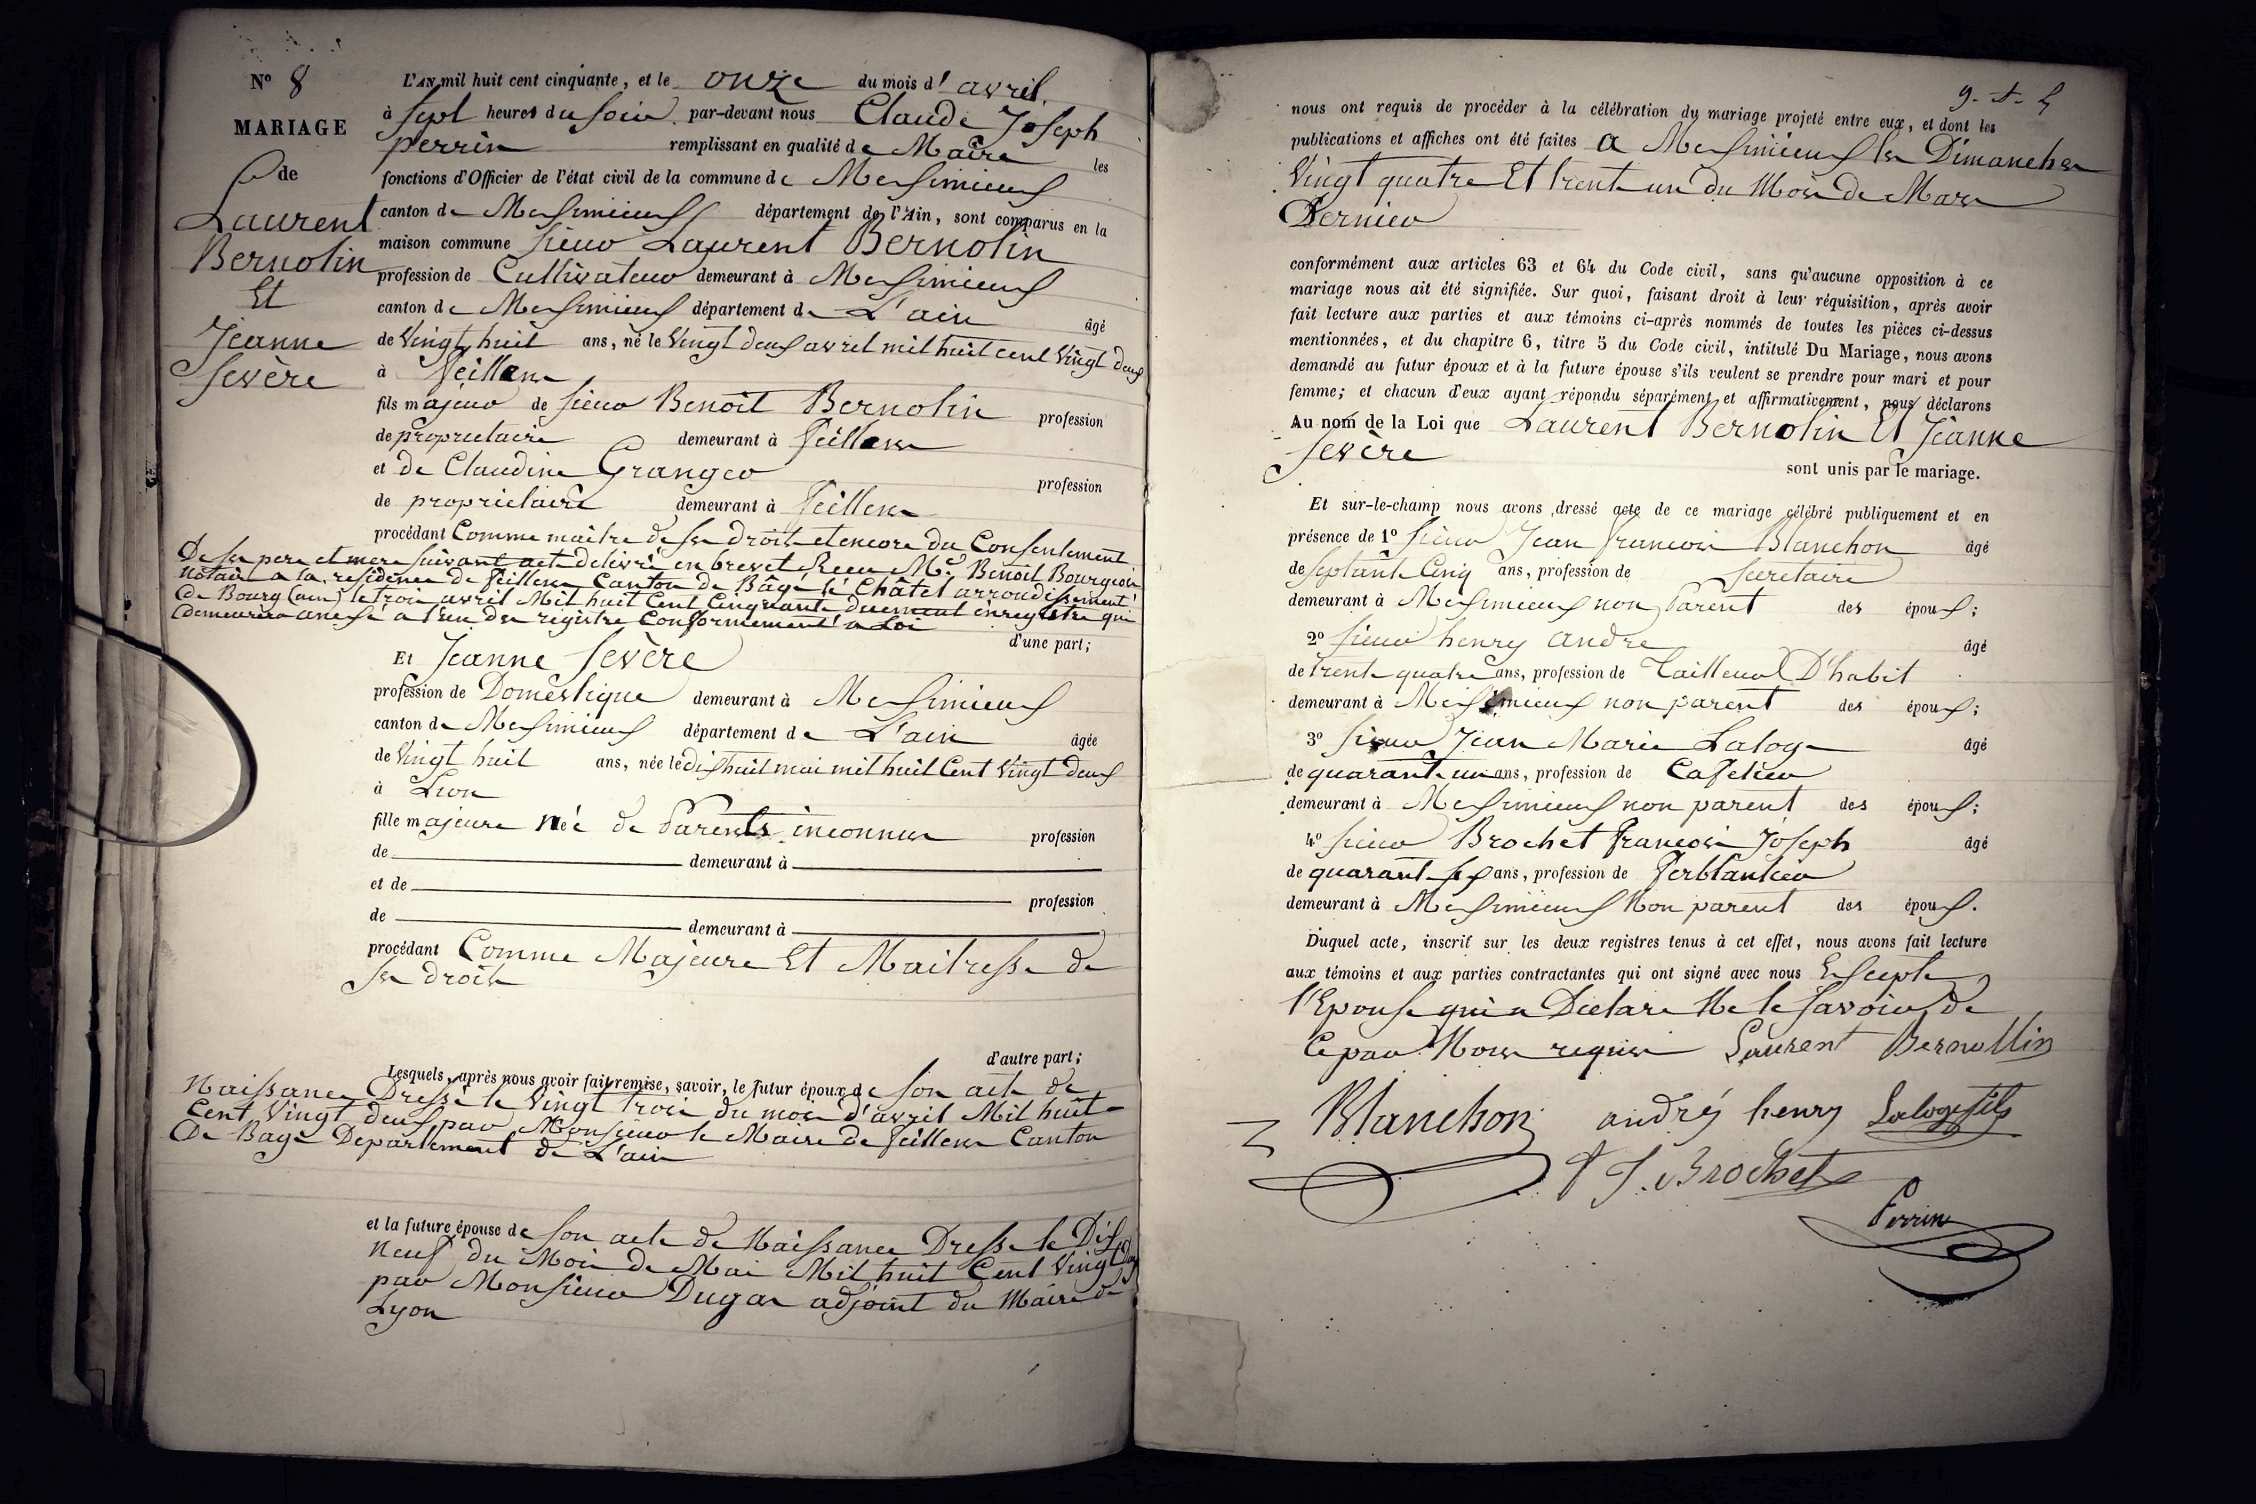 N° 8
MARIAGE
de
Laurent
Bernolin
Et
Jeanne
Sevère
L'AN mil huit cent cinquante, et le onze du mois d'avril
à Sept heures du soir par-devant nous Claude Joseph
perrin remplissant en qualité de Maire les
fonctions d'Officier de l'état civil de la commune de Messimieux
canton de Messimieux département de l'Ain, sont comparus en la
maison commune sieur Laurent Bernolin
profession de Cultivateur demeurant à Messimieux
canton de Messimieux département de L'ain âgé
de Vingt huit ans, né le Vingt deux avril mil huit cent Vingt deux
à feillens
fils majeur de sieur Benoît Bernolin profession
de propriétaire demeurant à feillens
et de Claudine Granger profession
de propriétaire demeurant à feillens
procédant Comme maitre de ses droits et encore du Consentement
De ses pere et mere suivant acte delivré en brevet Recu Me Benoit Bourgeois
Notaire a la residence de feillens Canton de Bâgé le Châtel arrondissement
de Bourg (ain) le trois avril Mil huit Cent Cinquante duement enregistré qui
demeurera anexé a l'un des registre Conformement a Loi
d'une part;
Et Jeanne Sevère
profession de Domestique demeurant à Messimieux
canton de Messimieux département de L'ain âgée
de Vingt huit ans, née le dix huit mai mil huit Cent Vingt deux
à Lion
fille majeure née de Parents inconnus profession
de demeurant à
et de profession
de demeurant à
procédant Comme Majeure Et Maitresse de
ses droits
d'autre part;
Lesquels, après nous avoir fait remise, savoir, le futur époux de son acte de
Naissance Dressé le Vingt trois du mois d'avril Mil huit
Cent Vingt deux par Monsieur le Maire de feillens Canton
De Bagé Departement de L'ain
et la future épouse de son acte de Naissance Dressé le Dix
Neuf du Mois de Mai Mil huit Cent Vingt deux
par Monsieur Dugas adjoint du Maire de
Lyon
nous ont requis de procéder à la célébration du mariage projeté entre eux, et dont les
publications et affiches ont été faites a Messimieux les Dimanches
Vingt quatre Et trente un du Mois de Mars
Dernier
conformément aux articles 63 et 64 du Code civil, sans qu'aucune opposition à ce
mariage nous ait été signifiée. Sur quoi, faisant droit à leur réquisition, après avoir
fait lecture aux parties et aux témoins ci-après nommés de toutes les pièces ci-dessus
mentionnées, et du chapitre 6, titre 5 du Code civil, intitulé Du Mariage, nous avons
demandé au futur époux et à la future épouse s'ils veulent se prendre pour mari et pour
femme; et chacun d'eux ayant répondu séparément et affirmativement, nous déclarons
Au nom de la Loi que Laurent Bernolin Et Jeanne
Sevère
sont unis par le mariage.
Et sur-le-champ nous avons dressé acte de ce mariage célébré publiquement et en
présence de 1° sieur Jean francois Blanchon âgé
de septante Cinq ans, profession de Secretaire
demeurant à Messimieux non Parent des époux;
2° sieur henry andre âgé
de trente quatre ans, profession de Tailleur D'habit
demeurant à Messimieux non parent des époux;
3° sieur Jean Marie Laloge âgé
de quarante un ans, profession de Cafetier
demeurant à Messimieux non parent des époux;
4° sieur Brochet francois Joseph âgé
de quarante six ans, profession de Ferblantier
demeurant à Messimieux Non parent des époux.
Duquel acte, inscrit sur les deux registres tenus à cet effet, nous avons fait lecture
aux témoins et aux parties contractantes qui ont signé avec nous Excepté
l'Epouse qui a Declaré Ne le savoir de
Ce par Nous requis Laurent Bernollin
Blanchon andré henry Laloge fils
f J. Brochet
Perrin